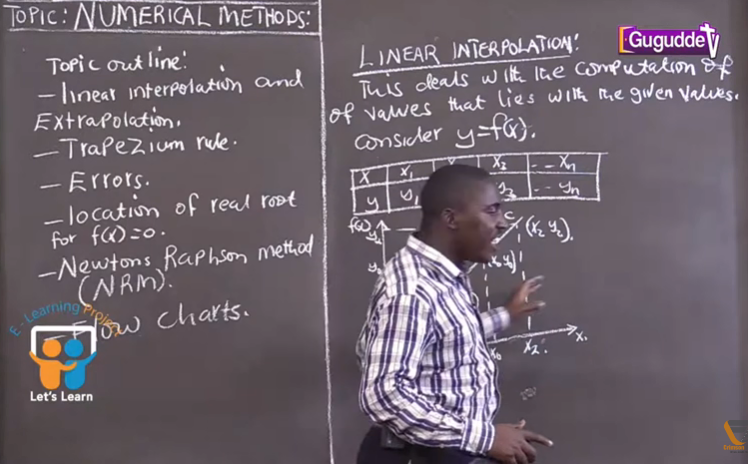 TOPIC: NUMERICAL METHODS:
Topic outline:
- linear interpolation and
Extrapolation.
- Trapezium rule.
- Errors.
- location of real root
for f(x)=0.
- Newtons Raphson method
(NRM).
- Flow charts.
E-Learning Project
Let's Learn
Gugudde TV
LINEAR INTERPOLATION:
This deals with the computation of
of values that lies with the given values.
Consider y=f(x).
x x₁ x₃ -- xₙ
y y₁ y₃ -- yₙ
f(x)
y₂
C
(x₂ y₂).
x₀ x₂. x.